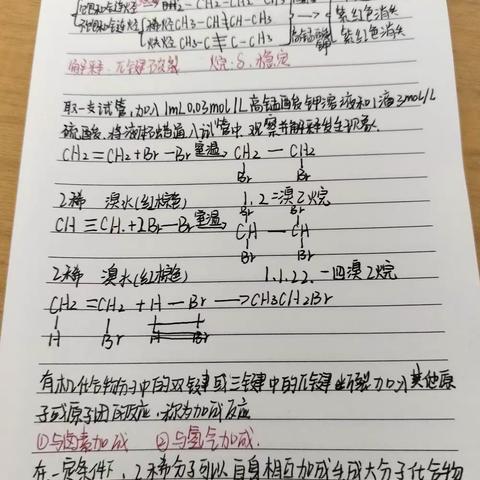 CH2-CH2-CH2-CH3
烯烃 CH3-CH=CH-CH3
紫红色消失
炔烃 CH3-C≡C-CH3
紫红色消失
烷:δ.稳定
取一支试管,加入1mL0.03mol/L高锰酸钾溶液和1滴3mol/L
硫酸.将液体石蜡滴入试管中.观察并解释发生现象.
CH2=CH2+Br-Br 室温 CH2-CH2
Br Br
乙稀 溴水(红棕色) 1.2二溴乙烷
CH≡CH.+2Br-Br 室温 CH-CH
Br Br
Br Br
乙稀 溴水(红棕色) 1.1.2.2.一四溴乙烷
CH2=CH2+H-Br→CH3CH2Br
H Br
H Br
有机化合物分子中的双键或三键中的π键断裂加入其他原
子或原子团的反应.称为加成反应
①与卤素加成 ②与氢气加成.
在一定条件下,乙稀分子可以自身相互加成生成大分子化合物